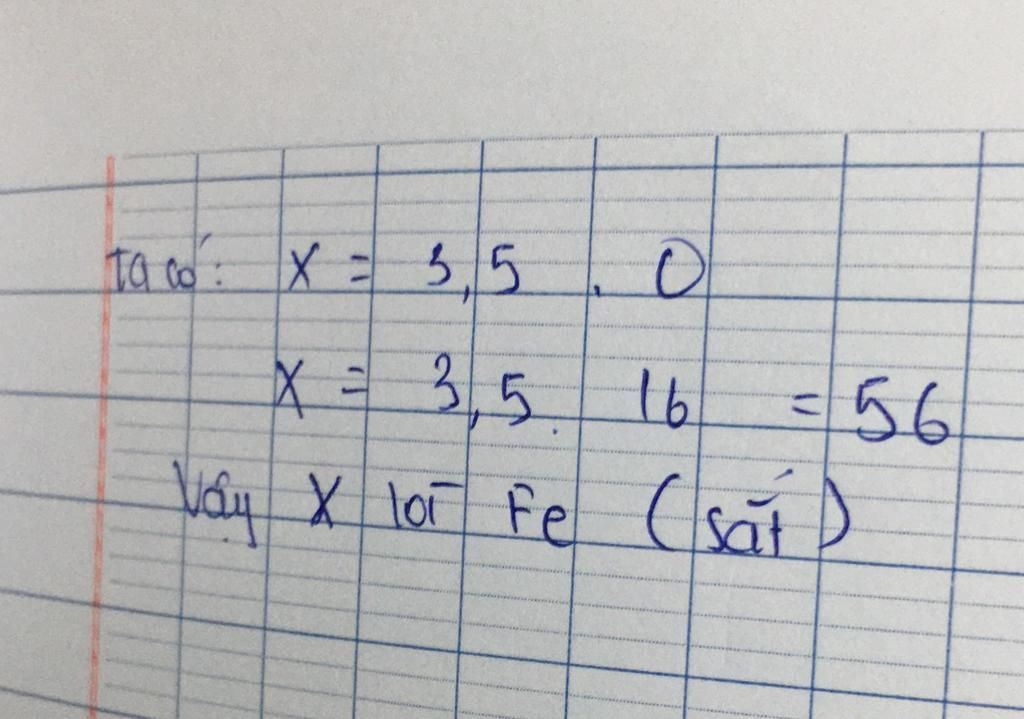 ta có: X = 3,5 . O
X = 3,5. 16 = 56
Vậy X là Fe (sắt)